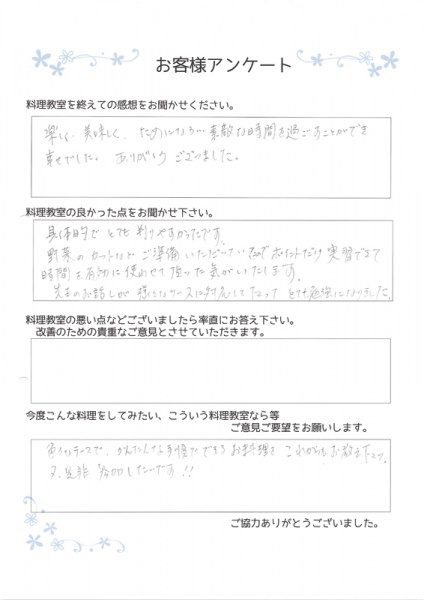 お客様アンケート
料理教室を終えての感想をお聞かせください。
楽しく、美味しく、ためになる 素敵な時間を過ごすことができ
幸せでした。ありがとうございました。
料理教室の良かった点をお聞かせ下さい。
具体的で とても判りやすかったです。
野菜のカットなど ご準備いただいているのでポイントだけ実習できて
時間を有効に使わせて頂いた気がいたします。
先生のお話しが 様々なケースに対応して とても勉強になりました。
料理教室の悪い点などございましたら率直にお答え下さい。
改善のための貴重なご意見とさせていただきます。
今度こんな料理をしてみたい、こういう料理教室なら等
ご意見ご要望をお願いします。
テーマで、かんたんな お料理を これからも お教え下さい。
又、是非 参加したいです!!
ご協力ありがとうございました。